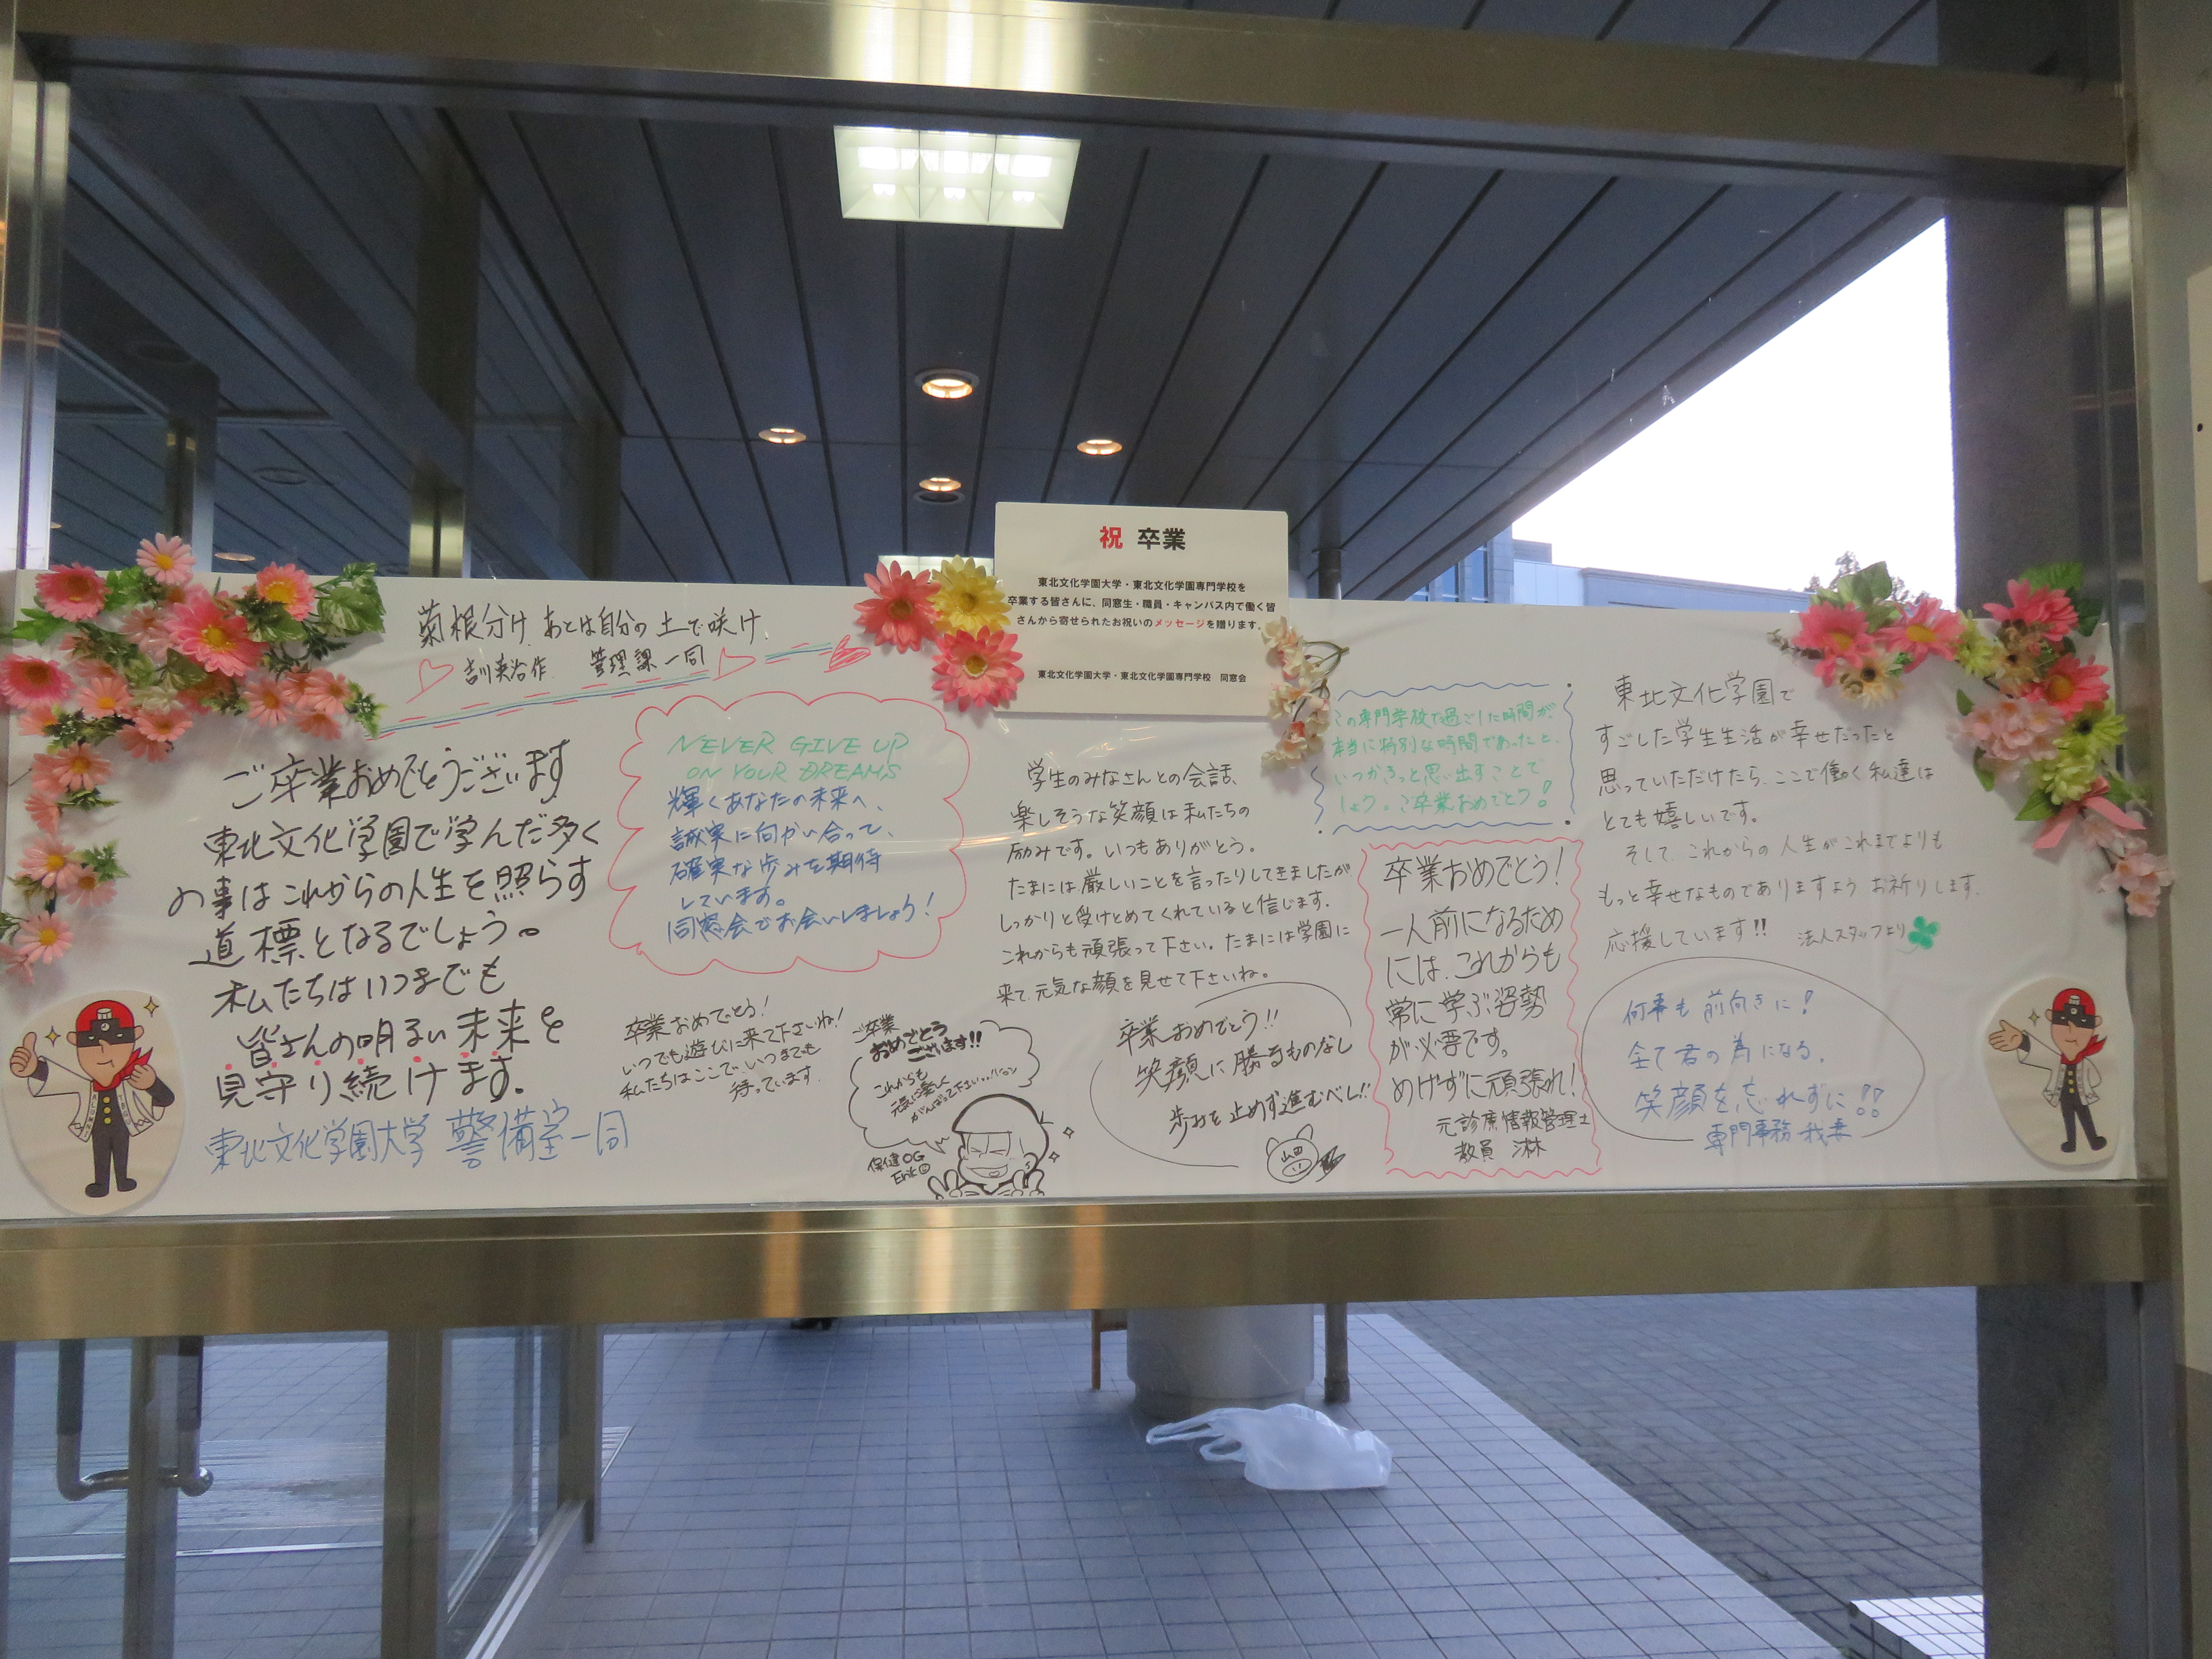 祝 卒業
東北文化学園大学・東北文化学園専門学校を
卒業する皆さんに、同窓生・職員・キャンパス内で働く皆
さんから寄せられたお祝いのメッセージを贈ります。
東北文化学園大学・東北文化学園専門学校 同窓会
菊根分け あとは自分の土で咲け
吉川英治作 管理課一同
ご卒業おめでとうございます
東北文化学園で学んだ多く
の事はこれからの人生を照らす
道標となるでしょう。
私たちはいつまでも
皆さんの明るい未来を
見守り続けます。
東北文化学園大学 警備室一同
NEVER GIVE UP
ON YOUR DREAMS
輝くあなたの未来へ、
誠実に向かい合って、
確実な歩みを期待
しています。
同窓会でお会いしましょう!
卒業おめでとう!
いつでも遊びに来て下さいね!
私たちはここで、いつまでも
待っています。
ご卒業
おめでとう
ございます!!
これからも
元気に楽しく
がんばって下さい
保健OG
学生のみなさんとの会話、
楽しそうな笑顔は私たちの
励みです。いつもありがとう。
たまには厳しいことを言ったりしてきましたが
しっかりと受けとめてくれていると信じます。
これからも頑張って下さい。たまには学園に
来て、元気な顔を見せて下さいね。
卒業おめでとう!!
笑顔に勝るものなし
歩みを止めず進むべし!!
山田
この専門学校で過ごした時間が、
本当に特別な時間であったと、
いつかきっと思い出すことで
しょう。ご卒業おめでとう!
卒業おめでとう!
一人前になるため
には、これからも
常に学ぶ姿勢
が必要です。
めげずに頑張れ!
元診療情報管理士
教員
東北文化学園で
すごした学生生活が幸せだったと
思っていただけたら、ここで働く私達は
とても嬉しいです。
そして、これからの人生がこれまでよりも
もっと幸せなものでありますよう お祈りします。
応援しています!! 法人スタッフより
何事も前向きに!
全て君の為になる。
笑顔を忘れずに!!
専門事務 我妻